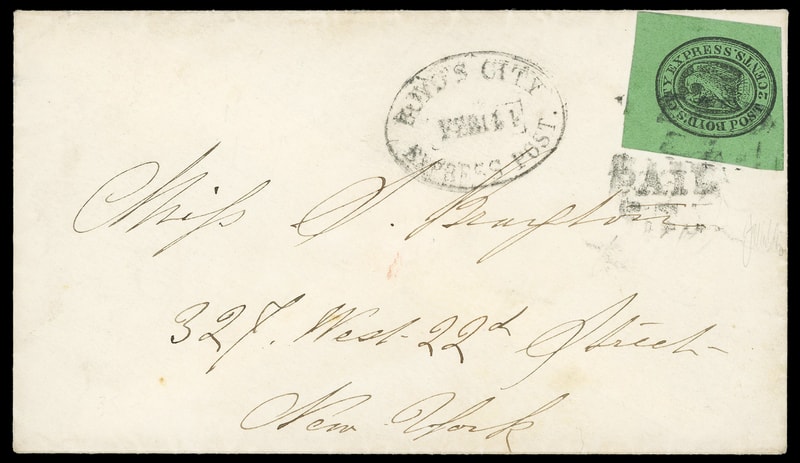 BOYD'S CITY
EXPRESS POST.
FEB 14
BOYD'S CITY EXPRESS POST 2 CENTS.
PAID
Miss S. Brayton
327. West 22d Street
New York